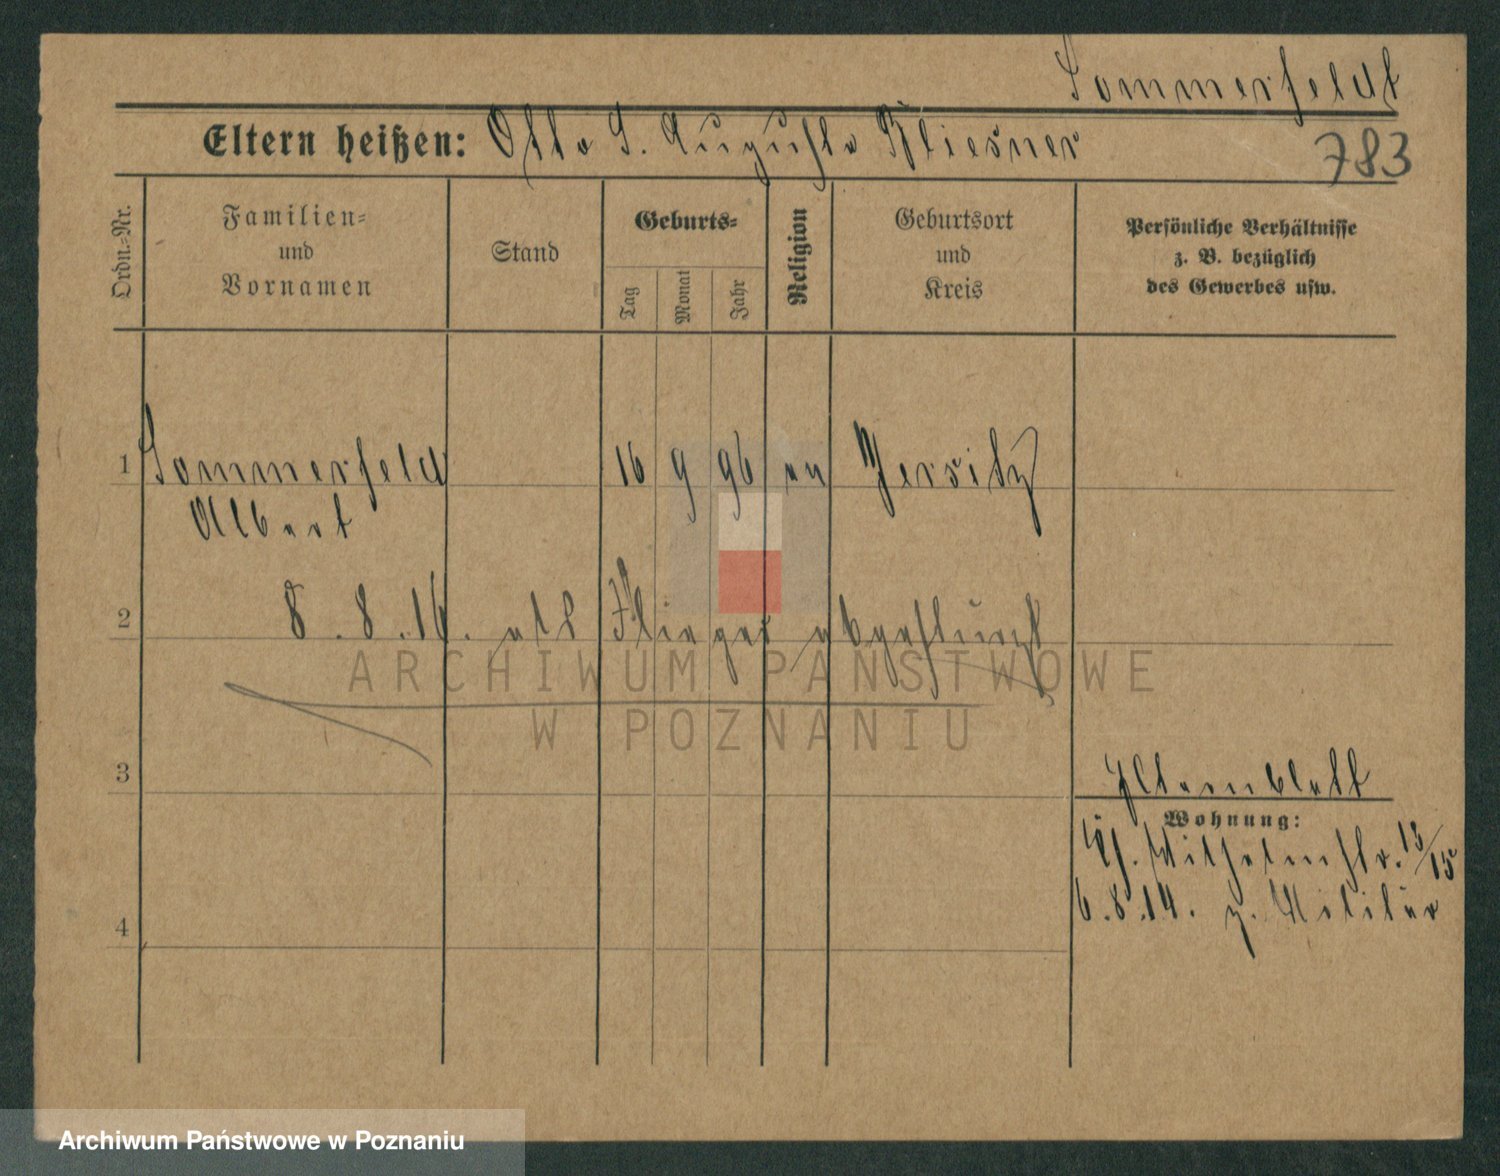 Sommerfeldt
Eltern heißen: Otto S. Auguste Kliesner
783
Ordn.-Nr.
Familien-
und
Vornamen
Stand
Geburts-
Tag
Monat
Jahr
Religion
Geburtsort
und
Kreis
Persönliche Verhältnisse
z. B. bezüglich
des Gewerbes usw.
1 Sommerfeld 16 9 96 ev Jersitz
Albert
2 8.8.16. als Flieger abgestürzt
ARCHIWUM PAŃSTWOWE
W POZNANIU
3
Elternblatt
Wohnung:
Wilhelmstr. 13/15
6.8.14. z. Militär
4
Archiwum Państwowe w Poznaniu